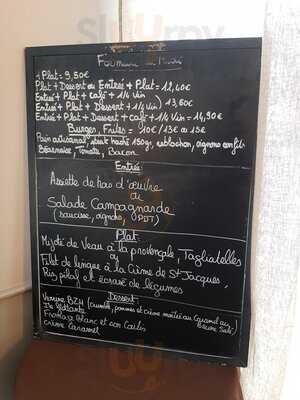 Formule du Midi
1 Plat = 9,50€
Plat + Dessert ou Entrée + Plat = 12,40€
Entrée + Plat + café + 1/4 vin
Entrée + Plat + Dessert + 1/4 vin } 13,60€
Entrée + Plat + Dessert + café + 1/4 Vin = 14,90€
Burger, Frites = 10€ / 13€ ou 15€
Pain artisanal, steak haché 150gr, reblochon, oignons confits
Béarnaise, Tomate, Bacon
Entrée
Assiette de hors d'œuvre
ou
Salade Campagnarde
(saucisse, oignons, PDT)
Plat
de Veau à la provençale, Tagliatelles
ou
Filet de lingue à la Crème de St Jacques,
Riz pilaf et écrasé de légumes
Dessert
Verrine BZH (crumble, pommes et crème montée au Caramel au
Beurre Salé)
Ile flottante
Fromage blanc et son Coulis
crème Caramel